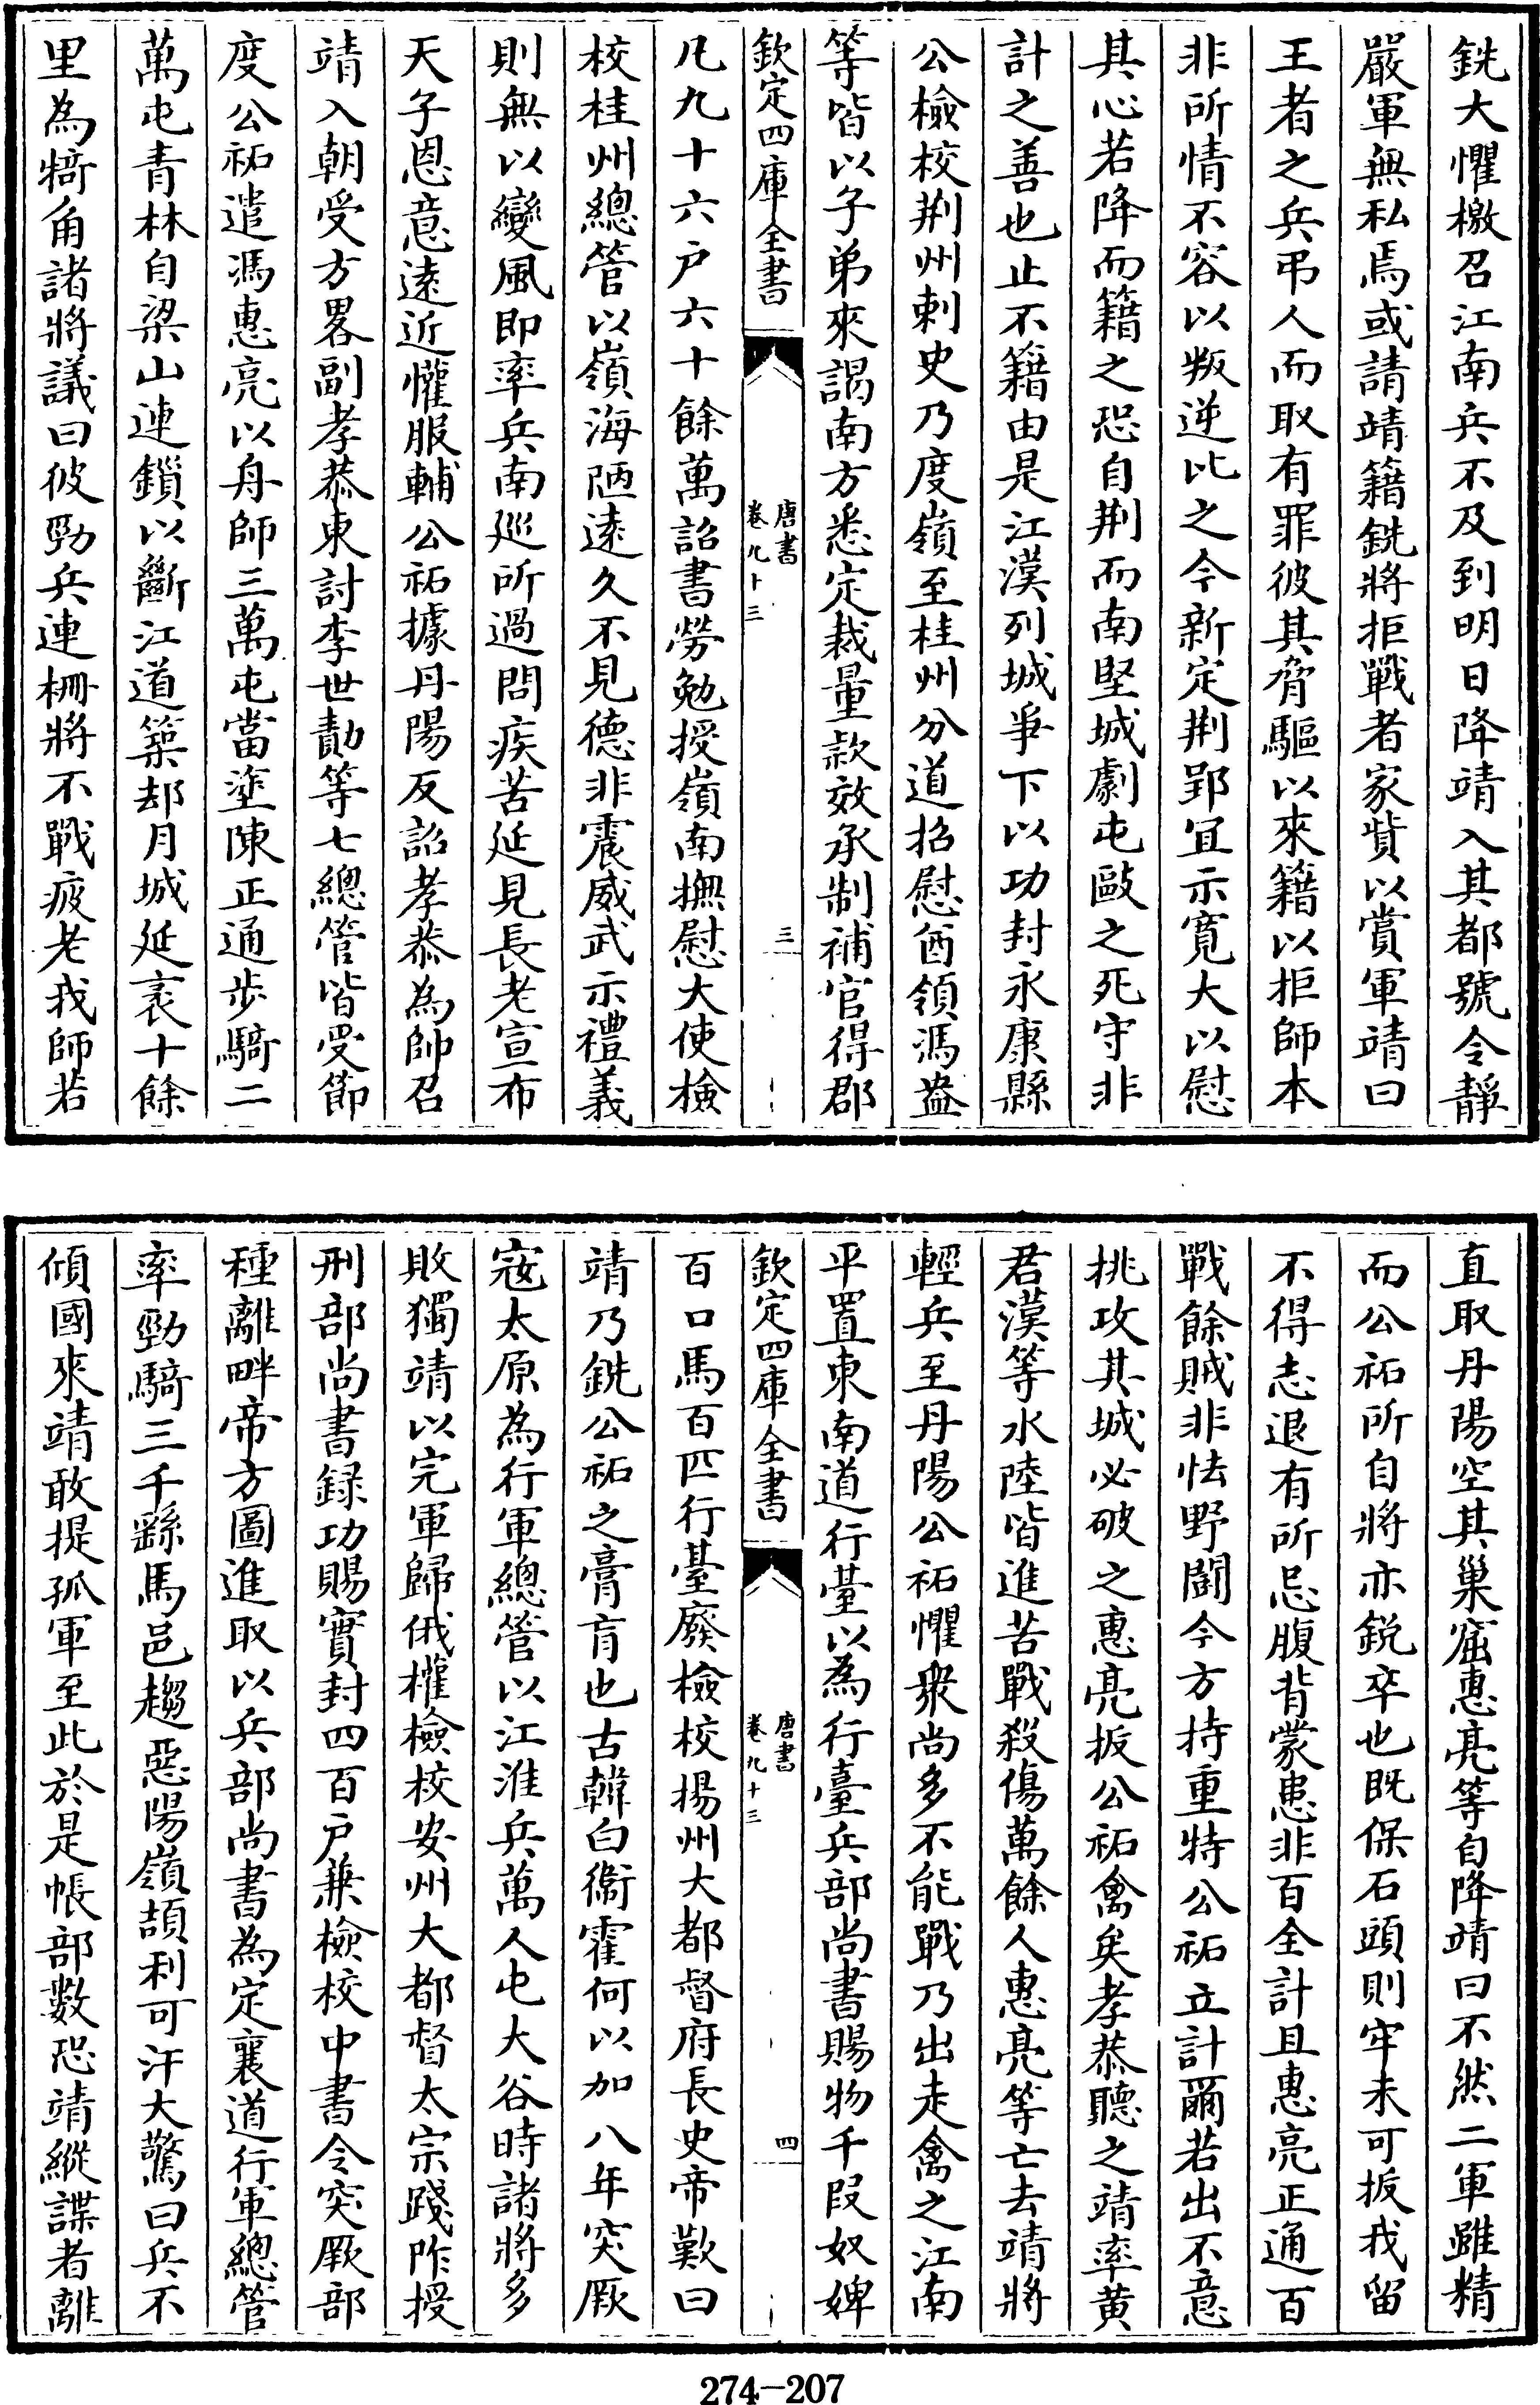 銑大懼檄召江南兵不及到明日降靖入其都號令靜
嚴軍無私焉或請靖籍銑將拒戰者家貲以賞軍靖曰
王者之兵弔人而取有罪彼其脅驅以來籍以拒師本
非所情不容以叛逆比之今新定荆郢宜示寛大以慰
其心若降而籍之恐自荆而南堅城劇屯敺之死守非
計之善也止不籍由是江漢列城爭下以功封永康縣
公檢校荆州刺史乃度嶺至桂州分道招慰酋領馮盎
等皆以子弟來謁南方悉定裁量款效承制補官得郡
欽定四庫全書
唐書
卷九十三
三
凡九十六户六十餘萬詔書勞勉授嶺南撫慰大使檢
校桂州總管以嶺海陋遠久不見德非震威武示禮義
則無以變風即率兵南廵所過問疾苦延見長老宣布
天子恩意遠近懽服輔公祏據丹陽反詔孝恭為帥召
靖入朝受方畧副孝恭東討李世勣等七總管皆受節
度公祏遣馮惠亮以舟師三萬屯當塗陳正通步騎二
萬屯青林自梁山連鎻以斷江道築却月城延袤十餘
里為犄角諸將議曰彼勁兵連栅將不戰疲老我師若
直取丹陽空其巢窟惠亮等自降靖曰不然二軍雖精
而公祏所自將亦鋭卒也既保石頭則牢未可扳我留
不得志退有所忌腹背蒙患非百全計且惠亮正通百
戰餘賊非怯野鬭今方持重特公祏立計爾若出不意
挑攻其城必破之惠亮扳公祏禽矣孝恭聽之靖率黄
君漢等水陸皆進苦戰殺傷萬餘人惠亮等亡去靖將
輕兵至丹陽公祏懼衆尚多不能戰乃出走禽之江南
平置東南道行臺以為行臺兵部尚書賜物千段奴婢
欽定四庫全書
唐書
卷九十三
四
百口馬百匹行臺廢檢校揚州大都督府長史帝歎曰
靖乃銑公祏之膏肓也古韓白衞霍何以加八年突厥
寇太原為行軍總管以江淮兵萬人屯大谷時諸將多
敗獨靖以完軍歸俄權檢校安州大都督太宗踐阼授
刑部尚書録功賜實封四百户兼檢校中書令突厥部
種離畔帝方圖進取以兵部尚書為定襄道行軍總管
率勁騎三千繇馬邑趨惡陽嶺頡利可汗大驚曰兵不
傾國來靖敢提孤軍至此於是帳部數恐靖縱諜者離
274-207